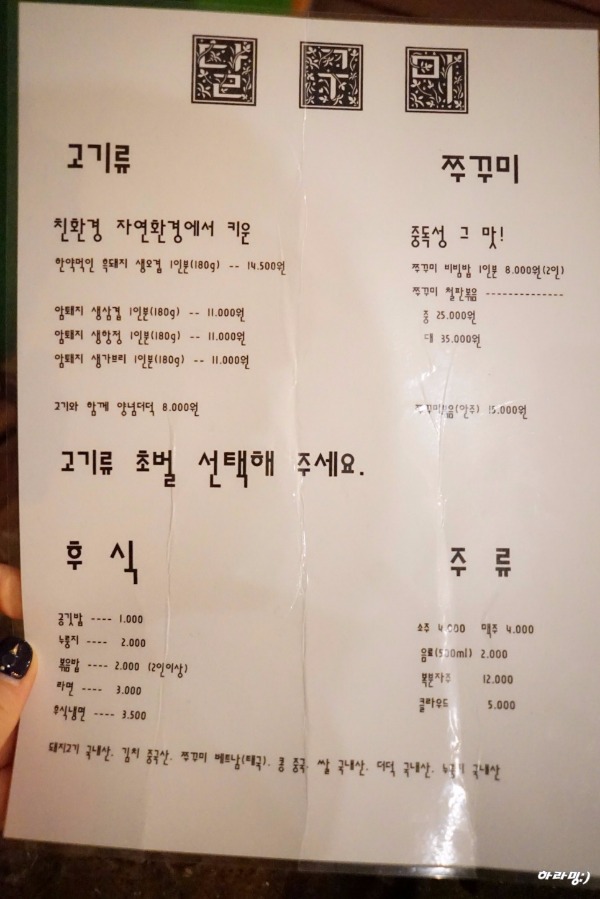 달 구 미
고기류
친환경 자연환경에서 키운
한약먹인 흑돼지 생오겹 1인분(180g) -- 14.500원
암퇘지 생삼겹 1인분(180g) -- 11.000원
암퇘지 생항정 1인분(180g) -- 11.000원
암퇘지 생가브리 1인분(180g) -- 11.000원
고기와 함께 양념더덕 8.000원
쭈꾸미
중독성 그 맛!
쭈꾸미 비빔밥 1인분 8.000원(2인)
쭈꾸미 철판볶음 --------------
중 25.000원
대 35.000원
쭈꾸미볶음(안주) 15.000원
고기류 초벌 선택해 주세요.
후 식
공깃밥 ---- 1.000
누룽지 ---- 2.000
볶음밥 ---- 2.000 (2인이상)
라면 ---- 3.000
후식냉면 ---- 3.500
주 류
소주 4.000 맥주 4.000
음료(500ml) 2.000
복분자주 12.000
클라우드 5.000
돼지고기 국내산. 김치 중국산. 쭈꾸미 베트남(태국). 콩 중국. 쌀 국내산. 더덕 국내산. 국내산
하라밍:)